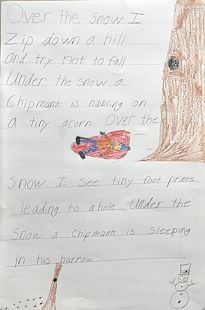 Over the Snow I
Zip down a hill
and try not to fall
Under the snow a
Chipmunk is nibling on
a tiny acorn. Over the
Snow I see tiny foot prints
leading to a hole. Under the
Snow a chipmunk is sleeping
in his burrow